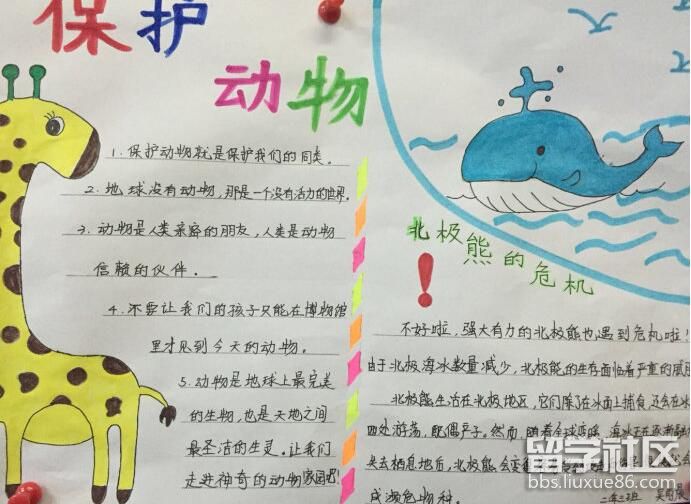 保护
动物
1.保护动物就是保护我们的同类。
2.地球没有动物,那是一个没有活力的世界。
3.动物是人类亲密的朋友,人类是动物
信赖的伙伴。
4.不要让我们的孩子只能在博物馆
里才见到今天的动物。
5.动物是地球上最完美
的生物,也是天地之间
最圣洁的生灵。让我们
走进神奇的动物家园吧
北极熊的危机
!
不好啦,强大有力的北极熊也遇到危机啦!
由于北极海冰数量减少,北极熊的生存面临着严重的威胁
北极熊生活在北极地区,它们除了在冰面上捕食,还会在冰
四处游荡,配偶产子。然而,随着全球变暖,海冰
失去栖息地后,北极熊会
成濒危物种。
留学社区
bbs.liuxue86.com